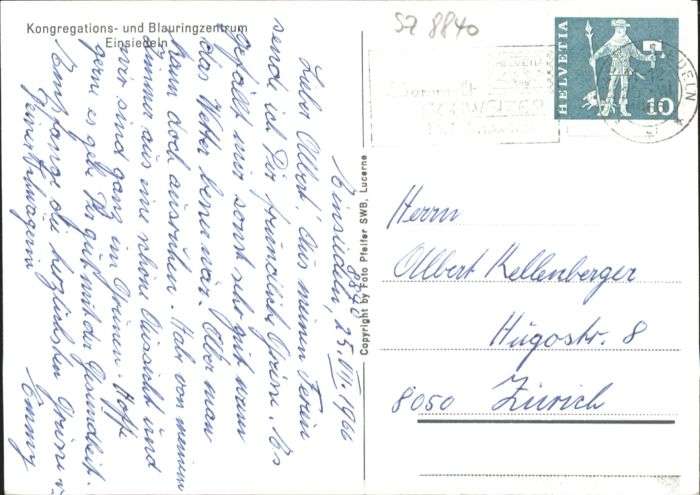 Kongregations- und Blauringzentrum
Einsiedeln
SZ 8840
HELVETIA
10
Einsiedeln, 25. VII. 1966
Lieber Albert! Aus meinen Ferien
sende ich Dir freundliche Grüsse. Es
gefällt mir sonst sehr gut wenn
das Wetter besser wär. Aber man
kann doch ausruhen. Hab von meinem
Zimmer aus eine schöne Aussicht und
wir sind ganz im Grünen. Hoffe
gerne es gehe Dir gut mit der Gesundheit.
Empfange die herzlichsten Grüsse v.
Deiner Schwägerin Emmy
Copyright by Foto Pfeifer SWB, Lucerne
Herrn
Albert Kellenberger
Hügostr. 8
8050 Zürich